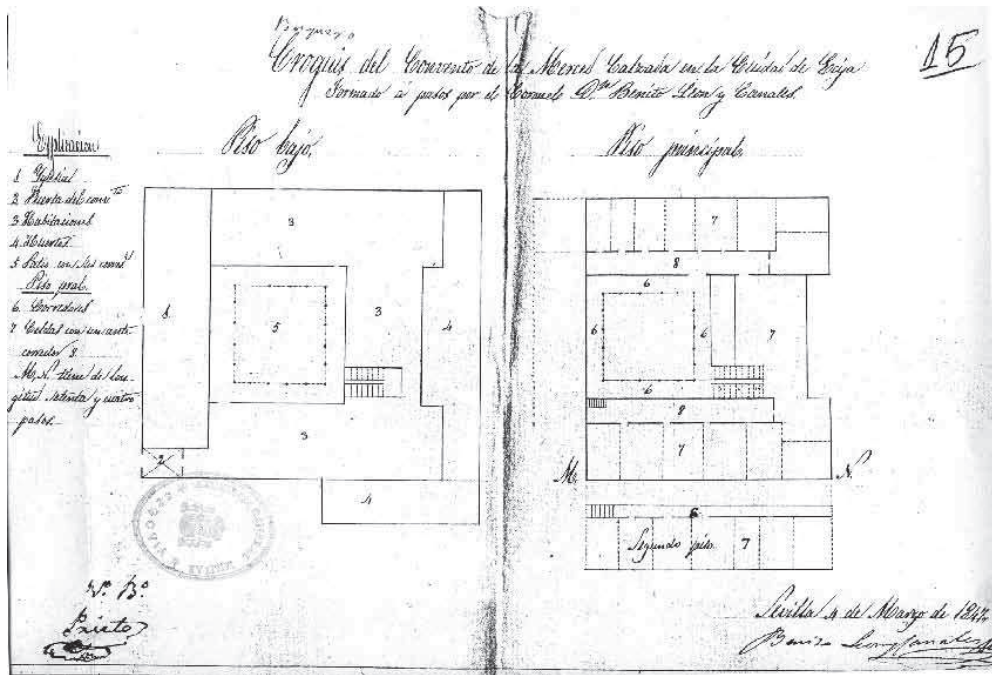 15
Croquis del Convento de la Merced Calzada en la Ciudad de Ecija
Formado á pasos por el Coronel Dn. Benito Leon y Canales.
Esplicacion
1 Yglesia
2 Puerta del convto
3 Habitaciones
4 Huertas
5 Patio con sus
Piso pral.
6 Corredores
7 Celdas con un
corredor 8.
M, N. tiene de lon-
gitud setenta y cuatro
pasos.
Piso bajo.
3
1
5
3
4
3
2
4
Piso principal.
7
8
6
6
6
7
6
8
7
M.
N.
6
Segundo piso. 7
Vº. Bº.
Prieto
Sevilla 4 de Marzo de
Benito Leon y Canales